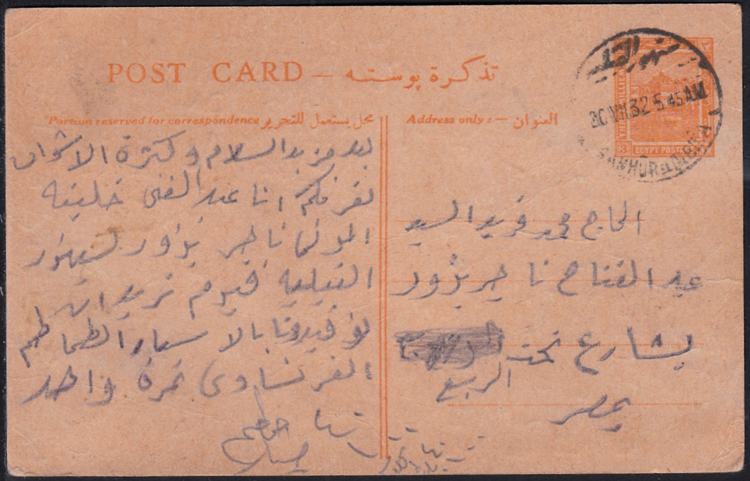 POST CARD — تذكرة بوستة
Portion reserved for correspondence محل يستعمل للتحرير
Address only :— العنوان
سنهور القبلية
30 VII 32 5.45 AM
SANHUR EL QIBLIYA
EGYPT POSTAGE
بعد مزيد السلام وكثرة الاشواق
نعرفكم انا عبد الغنى خليفه
تاجر بذور بسنهور
القبلية فيوم نريد ان
تفيدونا بالاسعار الطماطم
الفرنساوى نمرة واحد
الحاج محمد فريد السيد
عبد الفتاح تاجر بذور
بشارع تحت
الربع
بمصر